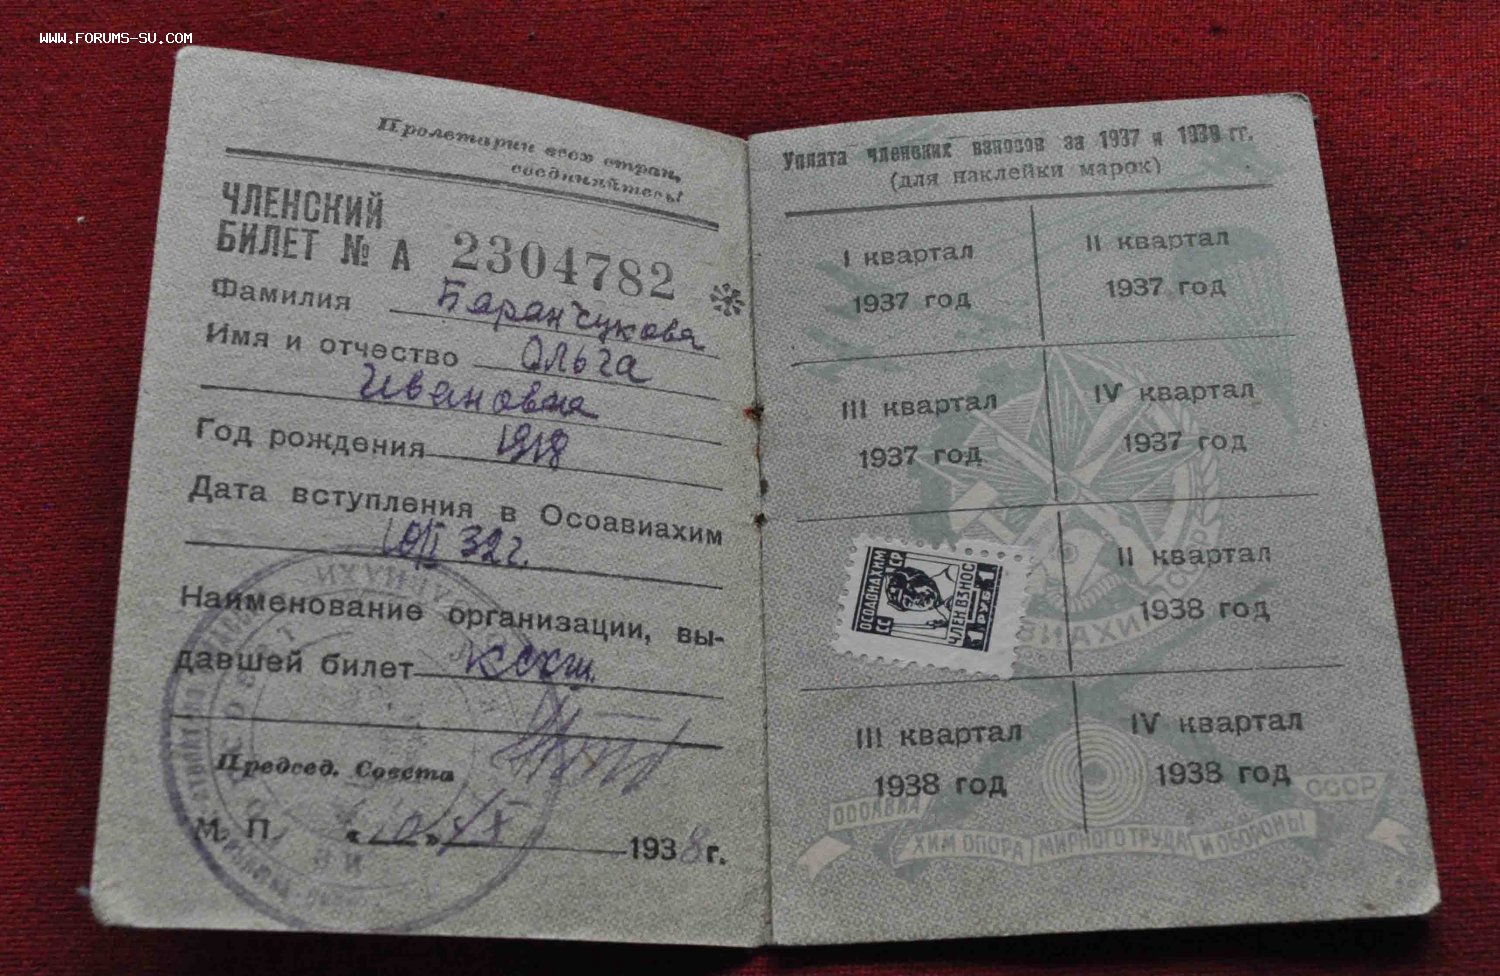 WWW.FORUMS-SU.COM
Пролетарии всех стран,
соединяйтесь!
ЧЛЕНСКИЙ
БИЛЕТ № А 2304782
Фамилия Баранчукова
Имя и отчество Ольга
Ивановна
Год рождения 1918
Дата вступления в Осоавиахим
32 г.
Наименование организации, вы-
давшей билет КСХШ.
Председ. Совета
М. П. 1938 г.
Уплата членских взносов за 1937 и 1938 гг.
(для наклейки марок)
I квартал
1937 год
II квартал
1937 год
III квартал
1937 год
IV квартал
1937 год
ОСОАВИАХИМ
СС СР
ЧЛЕН ВЗНОС
1 РУБ 1
II квартал
1938 год
III квартал
1938 год
IV квартал
1938 год
ОСОАВИА
ХИМ ОПОРА МИРНОГО ТРУДА И ОБОРОНЫ
СССР